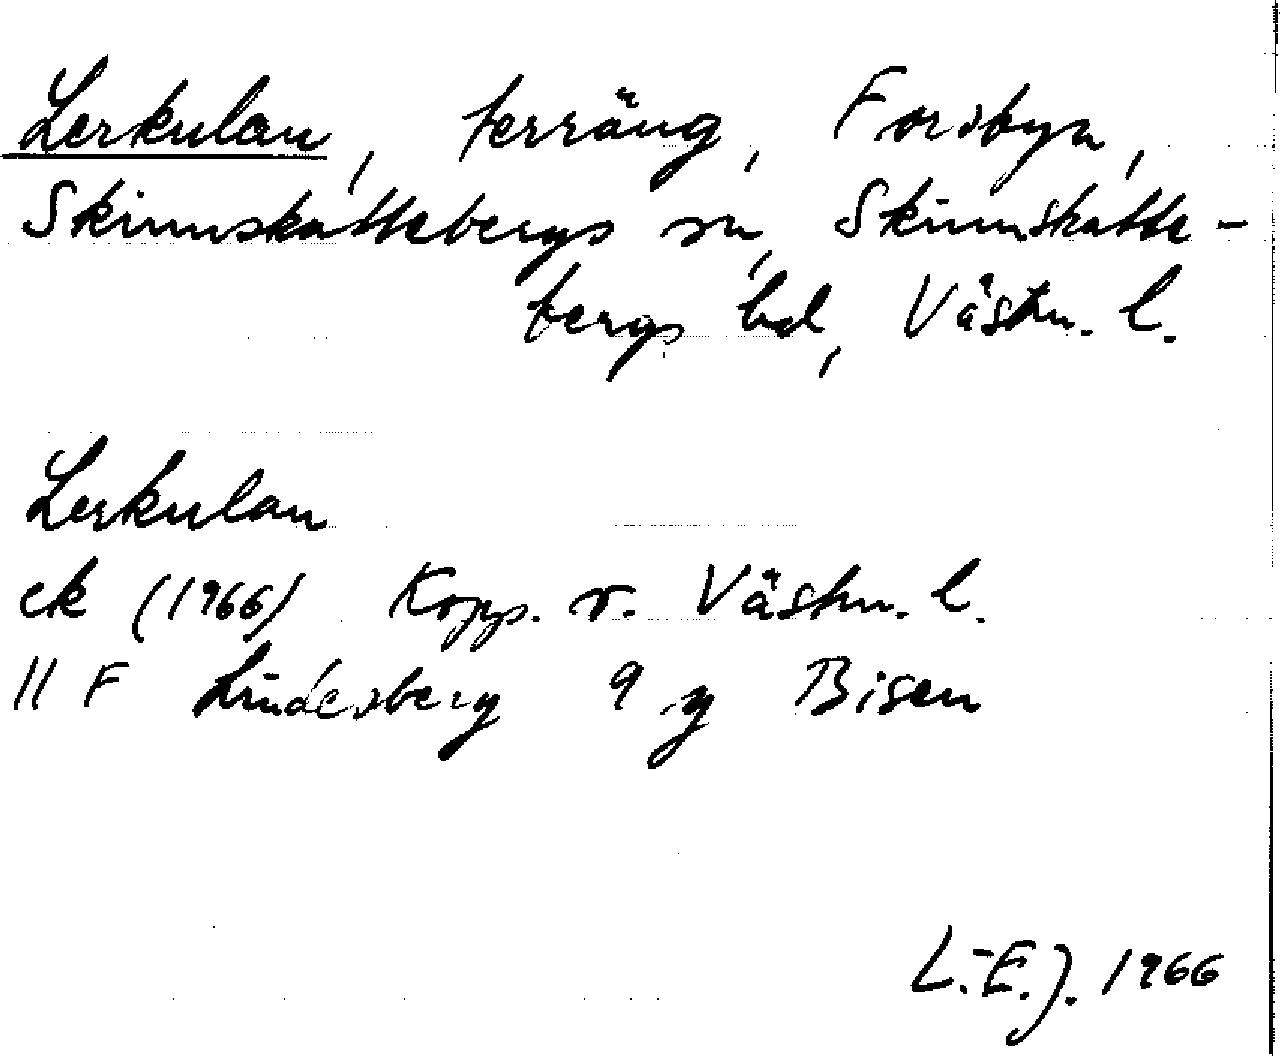 Lerkulan, terräng, Forsbyn,
Skinnskattebergs sn, Skinnskatte-
bergs hd, Västm. l.
Lerkulan
ek (1966) Kopp. o. Västm. l.
11 F Lindesberg 9 g Bisen
L.-E.J. 1966